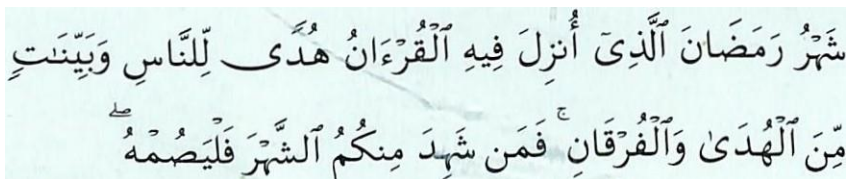 شَهْرُ رَمَضَانَ ٱلَّذِىٓ أُنزِلَ فِيهِ ٱلْقُرْءَانُ هُدًى لِّلنَّاسِ وَبَيِّنَـٰتٍ
مِّنَ ٱلْهُدَىٰ وَٱلْفُرْقَانِ ۚ فَمَن شَهِدَ مِنكُمُ ٱلشَّهْرَ فَلْيَصُمْهُ ۖ